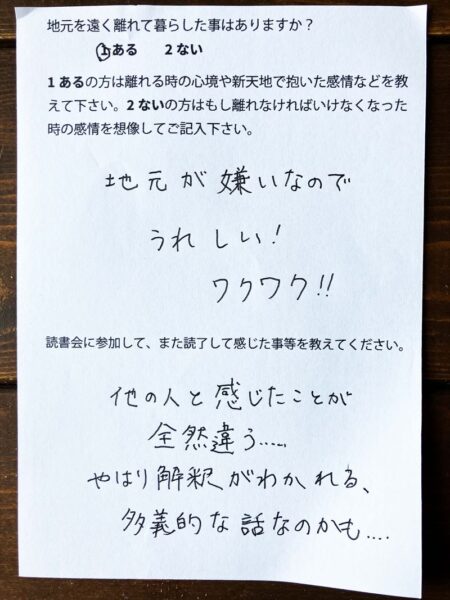 地元を遠く離れて暮らした事はありますか？
1 ある　　2 ない
1 あるの方は離れる時の心境や新天地で抱いた感情などを教
えて下さい。2 ないの方はもし離れなければいけなくなった
時の感情を想像してご記入下さい。
地元が嫌いなので
うれしい！
ワクワク!!
読書会に参加して、また読了して感じた事等を教えてください。
他の人と感じたことが
全然違う……
やはり解釈がわかれる、
多義的な話なのかも….